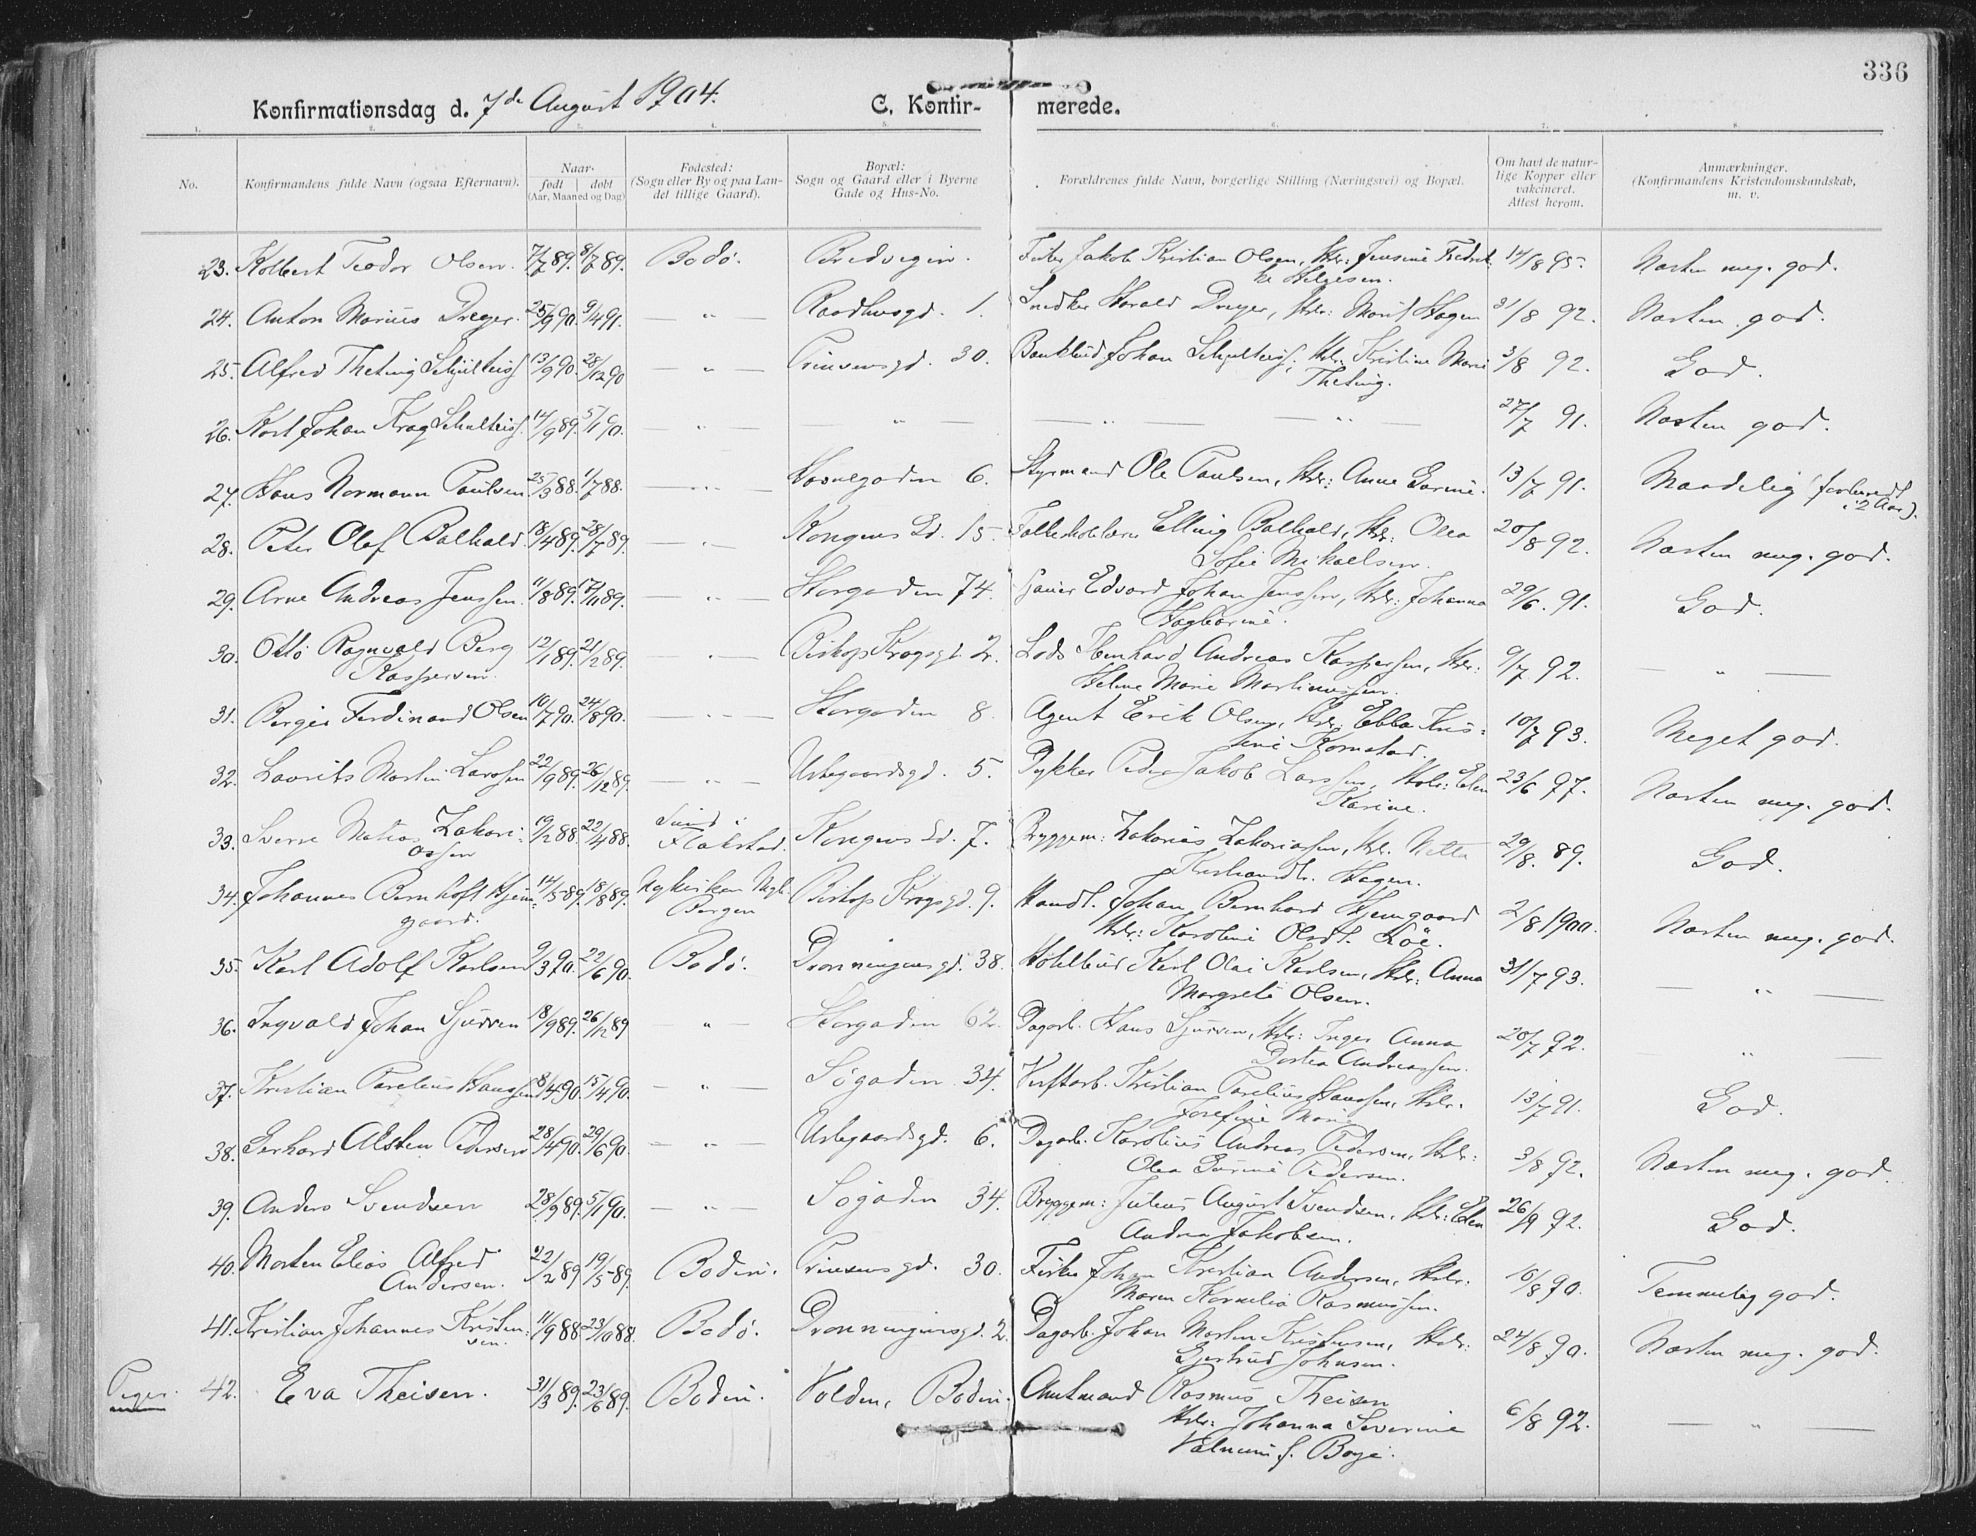 336
Konfirmationsdag d. 7de August 1904. C. Konfir- merede.
1. 2. 3. 4. 5. 6. 7. 8.
No. Konfirmandens fulde Navn (ogsaa Efternavn). Naar. født døbt (Aar, Maaned og Dag) Fødested: (Sogn eller By og paa Landet tillige Gaard). Bopæl: Sogn og Gaard eller i Byerne Gade og Hus-No. Forældrenes fulde Navn, borgerlige Stilling (Næringsvei) og Bopæl. Om havt de naturlige Kopper eller vakcineret. Attest herom. Anmærkninger. (Konfirmandens Kristendomskundskab, m. v.
23. Kolbert Teodor Olsen. 7/7 89. 8/7 89. Bodø. Bredvegin. Fisker Jakob Kristian Olsen, Hstr: Jensine Fredrik-
ke Helgesen. 14/8 95. Næsten meg. god.
24. Anton Marius Dreyer. 25/9 90. 9/4 91. — " — Raadhusgd. 1. Snedker Harald Dreyer, Hstr: Marit Hagen 31/8 92. Næsten god.
25. Alfred Theting Schjulteiss 13/9 90. 28/12 90 — " — Prinsensgd. 30. Bankbud Johan Schulteiss, Hstr. Kristine Marie
Theting. 3/8 92. God.
26. Kort Johan Krag Schulteiss. 14/9 89. 5/1 90. — " — " — " — " — 27/7 91. Næsten god.
27. Hans Normann Paulsen. 25/3 88. 1/7 88. — " — Havnegaden 6. Styrmand Ole Paulsen, Hstr: Anne Gurine. 13/7 91. Maadelig (forberedt
i 2 Aar).
28. Peter Olaf Balhald. 18/4 89. 28/7 89. — " — Kongens Gd. 15. Folkeskolelærer Elling Balhald, Hstr: Olea
Sofie Mikaelsen. 20/8 92. Næsten meg. god.
29. Arne Andreas Jenssen. 11/8 89. 17/11 89. — " — Storgaden 74. Edvard Johan Jenssen, Hstr: Johanna
Hagbarine. 29/6. 91. God.
30. Otto Ragnvald Berg
Kaspersen. 12/1 89. 21/2 89. — " — Biskop Kragsgd. 2. Lods Ibenhard Andreas Kaspersen, Hstr:
Helene Marie Martinussen. 9/7. 92. — " —
31. Berger Ferdinand Olsen 10/7 90. 24/8 90. — " — Storgaden 8. Agent Erik Olsen, Hstr: Ebba Kris-
tine Kornstad. 10/7 93. Meget god.
32. Laurits Martin Larssen 22/9 89. 26/12 89. — " — Urbegaardsgd. 5. Dykker Peder Jakob Larssen, Hstr: Elen
Karine. 23/6 97. Næsten meg. god.
33. Sverre Matias Zakari-
assen 19/2 88. 22/4 88. Sund i
Flakstad. Kongens Gd. 7. Bryggem: Zakarias Zakariassen, Hstr. Netta
Kristiansdtr. Hagen. 29/8. 89. God.
34. Johannes Bernhoft Hjem-
gaard. 14/5 89. 18/8 89. Nykirken Mgh.
Bergen Biskop Kragsgd. 9. Handl. Johan Bernhard Hjemgaard
Hstr: Karoline Olsdt. Löe. 2/8 1900. Næsten meg. god.
35. Karl Adolf Karlsen 9/3 90. 22/6 90. Bodø. Dronningensgd. 38. Hotelbud Karl Olai Karlsen, Hstr: Anna
Margrete Olsen. 31/7 93. — " —
36. Ingvald Johan Sjursen 18/9 89. 26/12 89 " — Storgaden 62. Dagarb. Hans Sjursen, Hstr: Inger Anna
Dortea Andreassen. 20/7 92. "
37. Kristian Parelius Hanssen 8/4 90. 15/4 90. — " — Søgaden 34. Verftarb. Kristian Parelius Hanssen, Hstr.
Josefine Marie 13/7 91. God.
38. Gerhard Alsten Pedersen 28/4 90. 29/6 90. — " — Urbegaardsgd. 6. Dagarb. Karolius Andreas Pedersen, Hstr:
Olea Gurine Pedersen. 3/8 92. Næsten meg. god.
39. Anders Svendsen 28/9 89. 5/1 90. — " — Søgaden 34. Bryggem: Julius August Svendsen, Hstr: Elen
Andrea Jakobsen. 26/9 92. God.
40. Morten Elias Alfred
Andersen. 22/2 89. 19/5 89. Bodin. Prinsensgd. 30. Fisker Johan Kristian Andersen, Hstr:
Maren Kornelia Rasmussen. 10/8 90. Temmelig god.
41. Kristian Johannes Kristen-
sen. 11/9 88. 23/10 88. Bodø. Dronningensgd. 2. Dagarb. Johan Martin Kristensen, Hstr:
Gjertrud Johnsen. 24/8 90. Næsten meg. god.
Piger. 42. Eva Theisen. 31/3 89. 23/6 89. Bodin. Volden, Bodin. Amtmand Rasmus Theisen
Hstr: Johanna Severine
f. Boye. 6/8 92. — " —